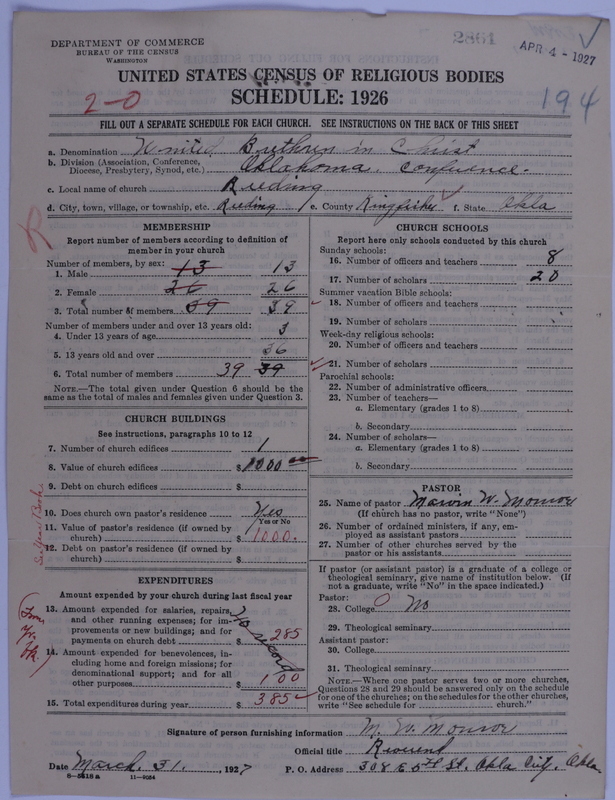 DEPARTMENT OF COMMERCE
BUREAU OF THE CENSUS
WASHINGTON
2864
APR 4 - 1927
UNITED STATES CENSUS OF RELIGIOUS BODIES
SCHEDULE: 1926
2-0
194
FILL OUT A SEPARATE SCHEDULE FOR EACH CHURCH. SEE INSTRUCTIONS ON THE BACK OF THIS SHEET
a. Denomination United Brethren in Christ
b. Division (Association, Conference, Diocese, Presbytery, Synod, etc.) Oklahoma conference.
c. Local name of church Reeding
d. City, town, village, or township, etc. Reeding e. County Kingfisher f. State Okla
R
MEMBERSHIP
Report number of members according to definition of member in your church
Number of members, by sex:
1. Male 13 13
2. Female 26 26
3. Total number of members 39 39
Number of members under and over 13 years old:
4. Under 13 years of age 3
5. 13 years old and over 36
6. Total number of members 39 39
NOTE.—The total given under Question 6 should be the same as the total of males and females given under Question 3.
CHURCH BUILDINGS
See instructions, paragraphs 10 to 12
7. Number of church edifices 1
8. Value of church edifices $1000 00
9. Debt on church edifices $
10. Does church own pastor's residence Yes
Yes or No
11. Value of pastor's residence (if owned by church) $1000.
12. Debt on pastor's residence (if owned by church) $
EXPENDITURES
Amount expended by your church during last fiscal year
13. Amount expended for salaries, repairs, and other running expenses; for improvements or new buildings; and for payments on church debt $285
no record
14. Amount expended for benevolences, including home and foreign missions; for denominational support; and for all other purposes $100
15. Total expenditures during year $385
CHURCH SCHOOLS
Report here only schools conducted by this church
Sunday schools:
16. Number of officers and teachers 8
17. Number of scholars 20
Summer vacation Bible schools:
18. Number of officers and teachers
19. Number of scholars
Week-day religious schools:
20. Number of officers and teachers
21. Number of scholars
Parochial schools:
22. Number of administrative officers
23. Number of teachers—
a. Elementary (grades 1 to 8)
b. Secondary
24. Number of scholars—
a. Elementary (grades 1 to 8)
b. Secondary
PASTOR
25. Name of pastor Marvin W. Monroe
(If church has no pastor, write "None")
26. Number of ordained ministers, if any, employed as assistant pastors
27. Number of other churches served by the pastor or his assistants
If pastor (or assistant pastor) is a graduate of a college or theological seminary, give name of institution below. (If not a graduate, write "No" in the space indicated.)
Pastor:
28. College 0 No
29. Theological seminary
Assistant pastor:
30. College
31. Theological seminary
NOTE.—Where one pastor serves two or more churches, Questions 28 and 29 should be answered only on the schedule for one of the churches; on the schedules for the other churches, write "See schedule for church."
Signature of person furnishing information M. W. Monroe
Official title Reverend
Date March 31., 1927 P. O. Address 308 E 5th St. Okla City, Okla
6-5818 a 11-9084